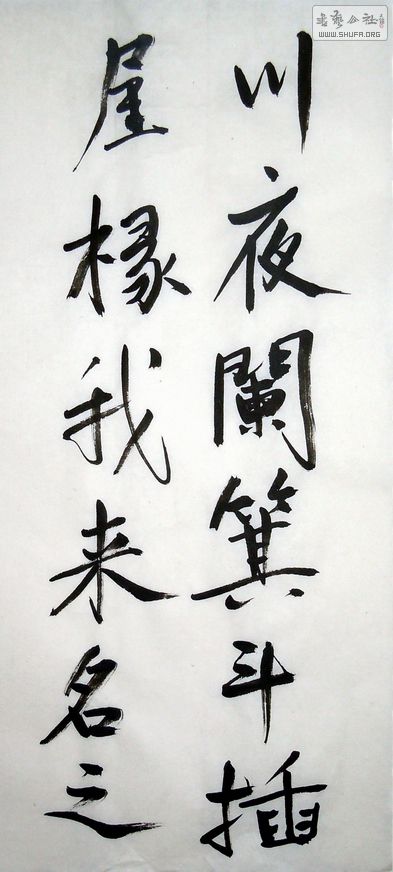 川夜闌箕斗插
屋椽我来名之
書藝公社
WWW.SHUFA.ORG